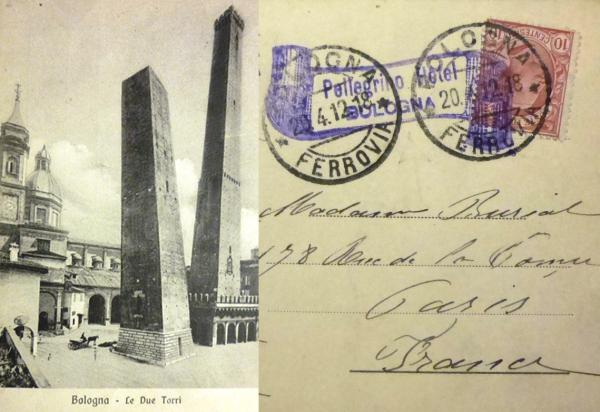 Bologna - Le Due Torri
BOLOGNA
20.4.12.18
FERROVIA
Pellegrino Hotel
BOLOGNA
BOLOGNA
20.4.12.18
FERROVIA
10
CENTES
10
Madame
178 Rue de la
Paris
France